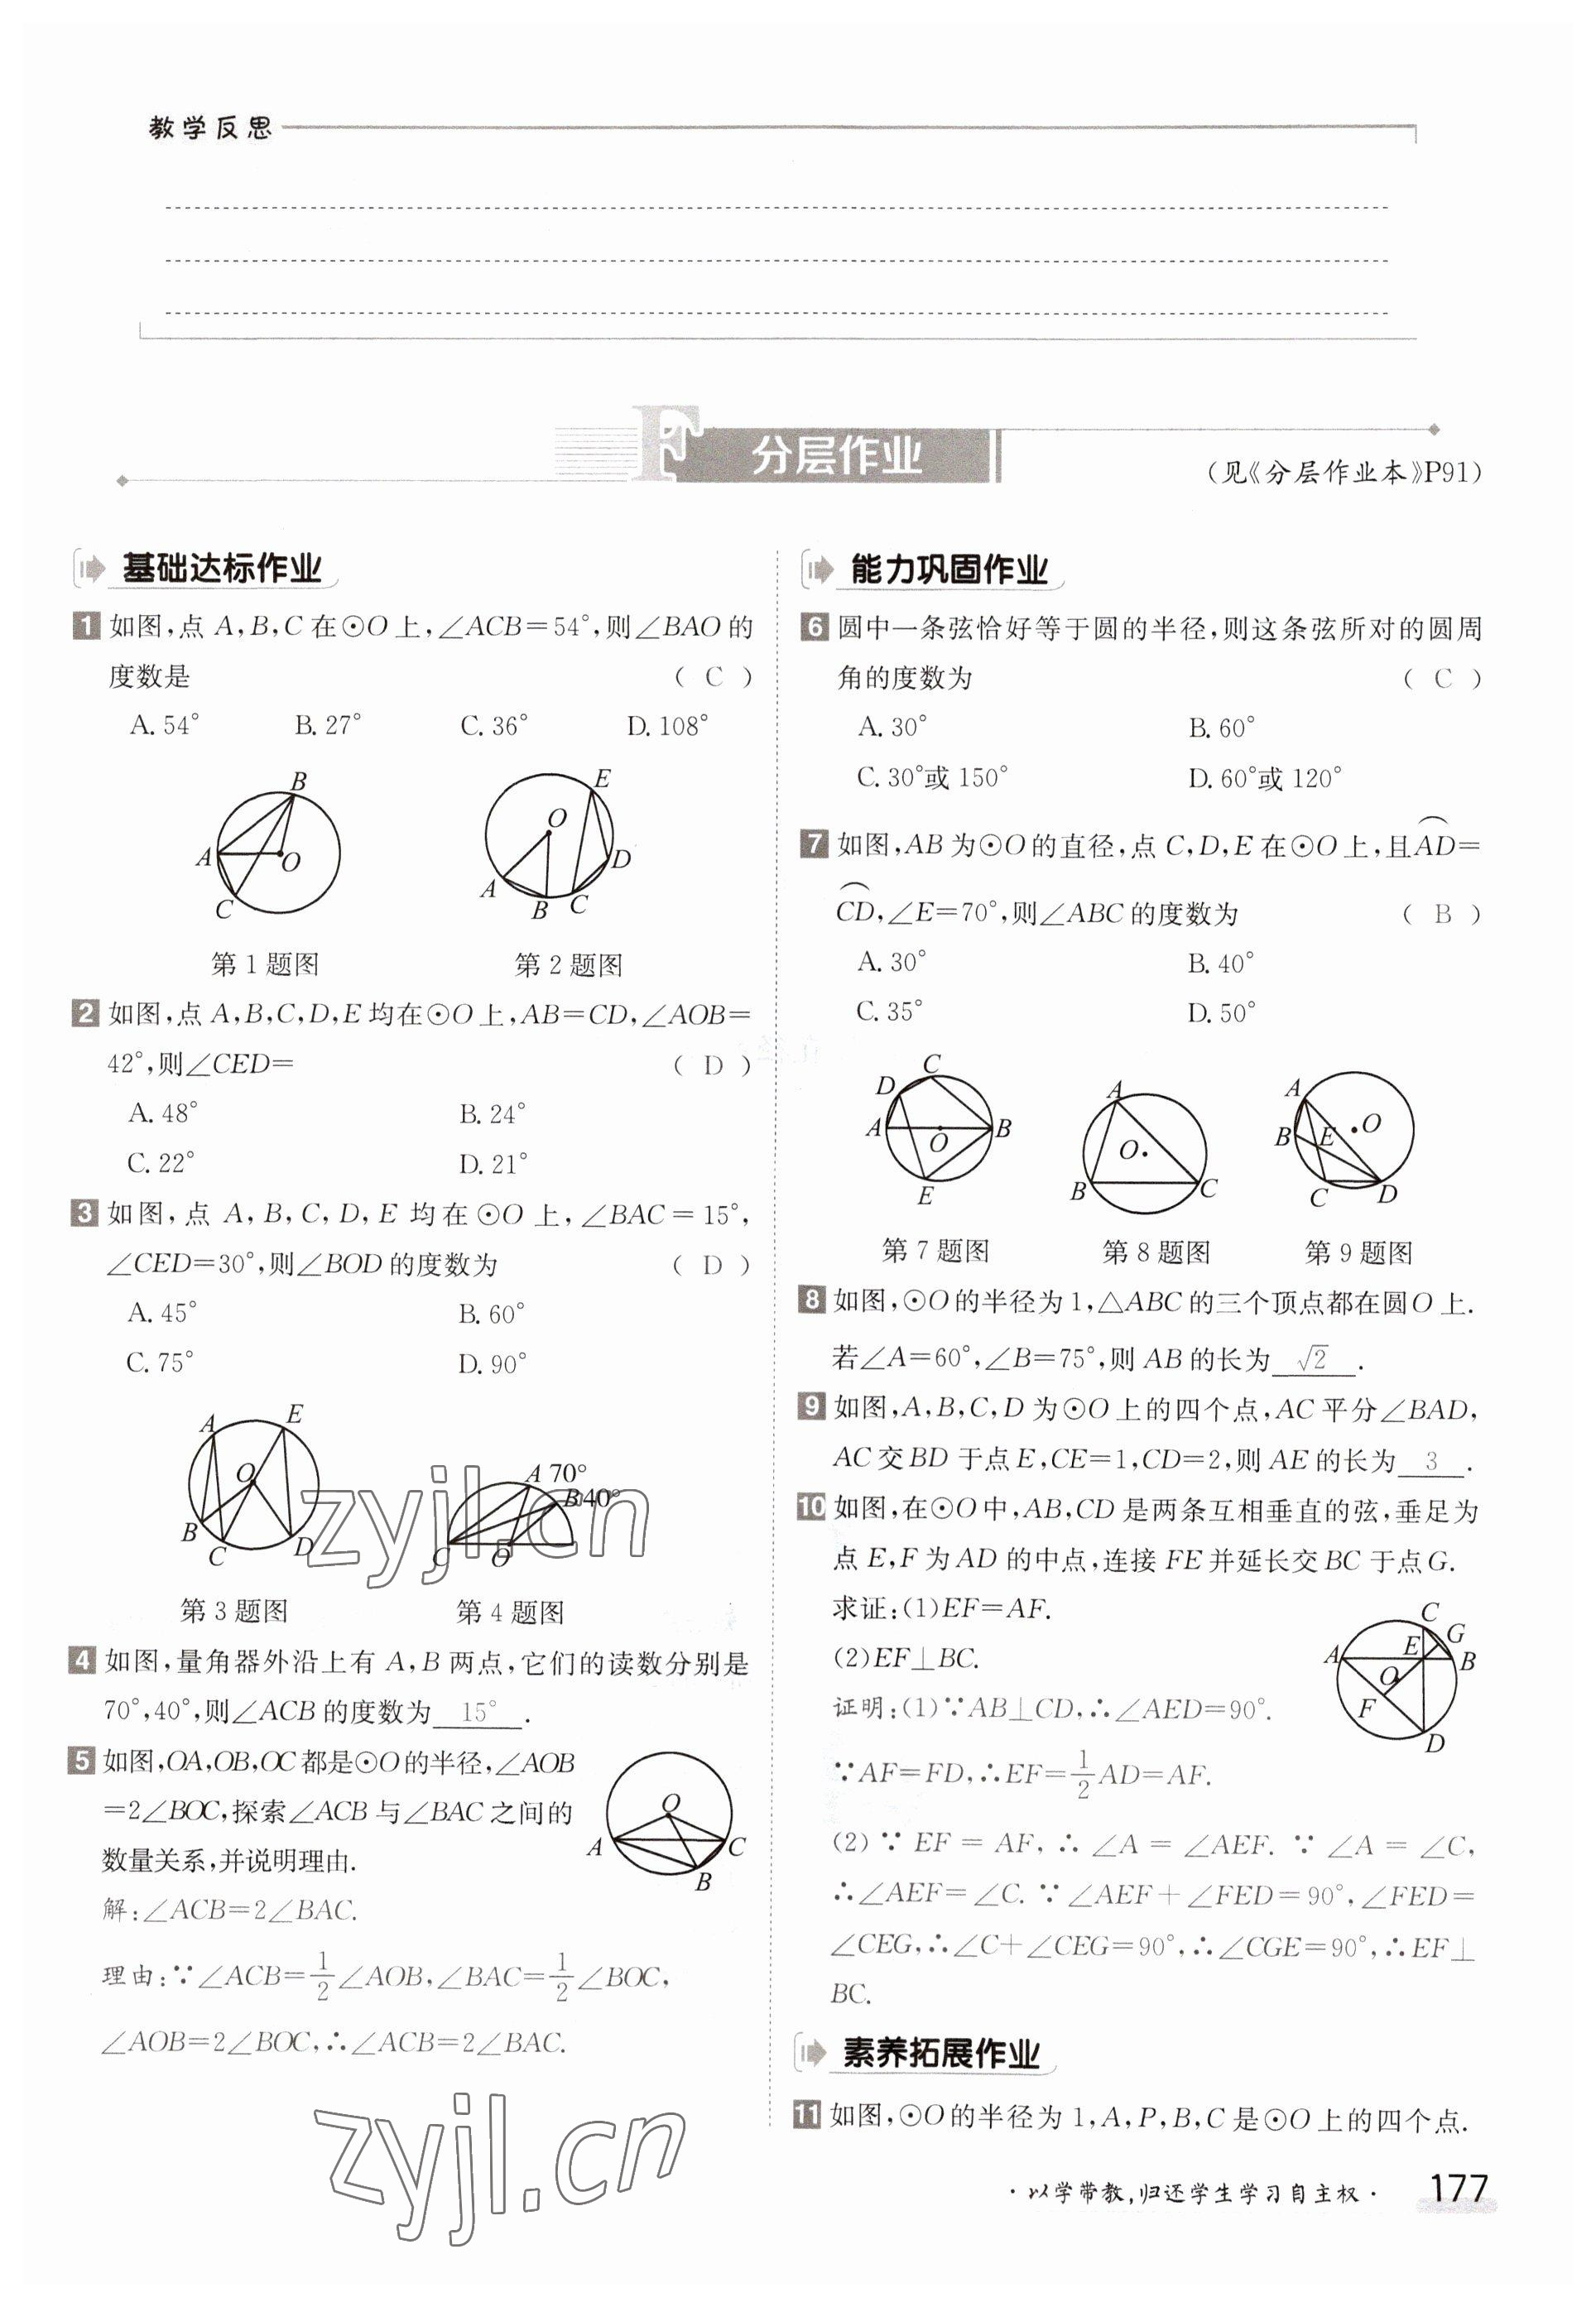 教学反思
分层作业
(见《分层作业本》P91)
基础达标作业
1 如图,点 A,B,C 在⊙O 上,∠ACB=54°,则∠BAO 的
度数是 ( C )
A. 54° B. 27° C. 36° D. 108°
B
A
O
C
第 1 题图
E
O
D
A
B
C
第 2 题图
2 如图,点 A,B,C,D,E 均在⊙O 上,AB=CD,∠AOB=
42°,则∠CED= ( D )
A. 48° B. 24°
C. 22° D. 21°
3 如图,点 A,B,C,D,E 均在⊙O 上,∠BAC=15°,
∠CED=30°,则∠BOD 的度数为 ( D )
A. 45° B. 60°
C. 75° D. 90°
A
E
O
B
C
D
第 3 题图
A 70°
B 40°
C
O
第 4 题图
4 如图,量角器外沿上有 A,B 两点,它们的读数分别是
70°,40°,则∠ACB 的度数为 15° .
5 如图,OA,OB,OC 都是⊙O 的半径,∠AOB
=2∠BOC,探索∠ACB 与∠BAC 之间的
数量关系,并说明理由.
O
A
C
B
解:∠ACB=2∠BAC.
理由:∵∠ACB=1/2∠AOB,∠BAC=1/2∠BOC,
∠AOB=2∠BOC,∴∠ACB=2∠BAC.
能力巩固作业
6 圆中一条弦恰好等于圆的半径,则这条弦所对的圆周
角的度数为 ( C )
A. 30° B. 60°
C. 30°或 150° D. 60°或 120°
7 如图,AB 为⊙O 的直径,点 C,D,E 在⊙O 上,且⌒AD=
⌒CD,∠E=70°,则∠ABC 的度数为 ( B )
A. 30° B. 40°
C. 35° D. 50°
C
D
A
O
B
E
第 7 题图
A
O
B
C
第 8 题图
A
O
B
E
C
D
第 9 题图
8 如图,⊙O 的半径为 1,△ABC 的三个顶点都在圆O 上.
若∠A=60°,∠B=75°,则 AB 的长为 √2 .
9 如图,A,B,C,D 为⊙O 上的四个点,AC 平分∠BAD,
AC 交 BD 于点 E,CE=1,CD=2,则 AE 的长为 3 .
10 如图,在⊙O 中,AB,CD 是两条互相垂直的弦,垂足为
点 E,F 为 AD 的中点,连接 FE 并延长交 BC 于点G.
求证:(1)EF=AF.
(2)EF⊥BC.
C
G
E
A
B
O
F
D
证明:(1)∵AB⊥CD,∴∠AED=90°.
∵AF=FD,∴EF=1/2AD=AF.
(2)∵EF=AF,∴∠A=∠AEF.∵∠A=∠C,
∴∠AEF=∠C.∵∠AEF+∠FED=90°,∠FED=
∠CEG,∴∠C+∠CEG=90°,∴∠CGE=90°,∴EF⊥
BC.
素养拓展作业
11 如图,⊙O 的半径为 1,A,P,B,C 是⊙O 上的四个点.
·以学带教,归还学生学习自主权· 177
zyjl.cn
zyjl.cn